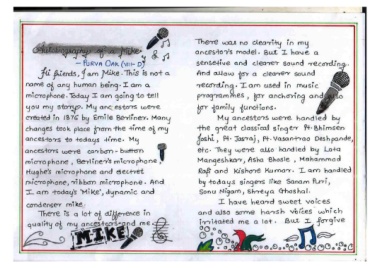 Autobiography of a Mike
- PURVA OAK (VIII-D)
Hi friends, I am Mike. This is not a
name of any human being. I am a
microphone. Today I am going to tell
you my story. My ancestors were
created in 1876 by Emile Berliner. Many
changes took place from the time of my
ancestors to todays time. My
ancestors were carbon-button
microphone, Berliner's microphone,
Hughe's microphone and electret
microphone, ribbon microphone. And
I am today's 'Mike', dynamic and
condenser mike.
There is a lot of difference in
quality of my ancestors and me.
MIKE
There was no clearity in my
ancestor's model. But I have a
sensetive and clearer sound recording.
And allow for a clearer sound
recording. I am used in music
programmes, for anchoring and also
for family functions.
My ancestors were handled by
the great classical singer Pt. Bhimsen
Joshi, Pt. Jasraj, Pt. Vasantrao Deshpande,
etc. They were also handled by Lata
Mangeshkar, Asha Bhosle, Mohammad
Rafi and Kishore Kumar. I am handled
by todays singers like Sanam Puri,
Sonu Nigam, Shreya Ghoshal.
I have heard sweet voices
and also some harsh voices which
irritated me a lot. But I forgive